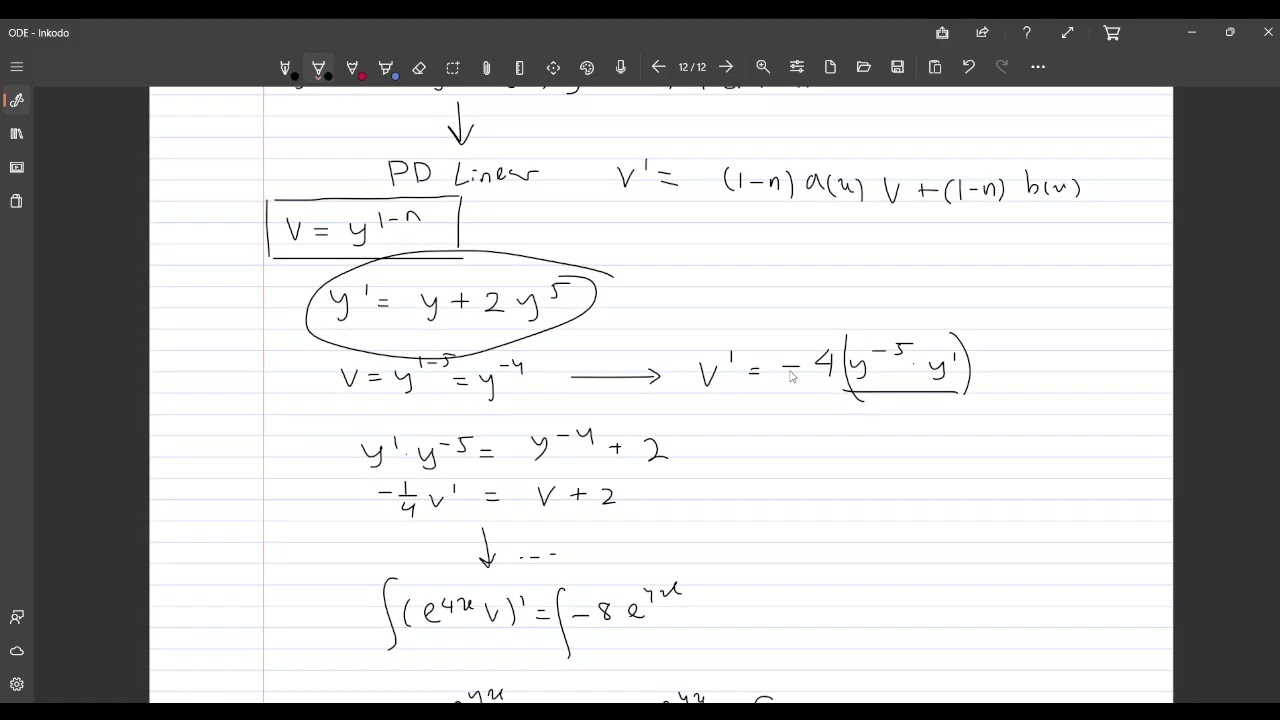 ODE - Inkodo
12/12
PD Linear V' = (1-n) a(x) V + (1-n) b(x)
V = y^{1-n}
y' = y + 2 y^5
V = y^{1-5} = y^{-4} → V' = -4(y^{-5} · y')
y' · y^{-5} = y^{-4} + 2
-1/4 v' = V + 2
↓ ...
∫(e^{4x} V)' = ∫ -8 e^{4x}